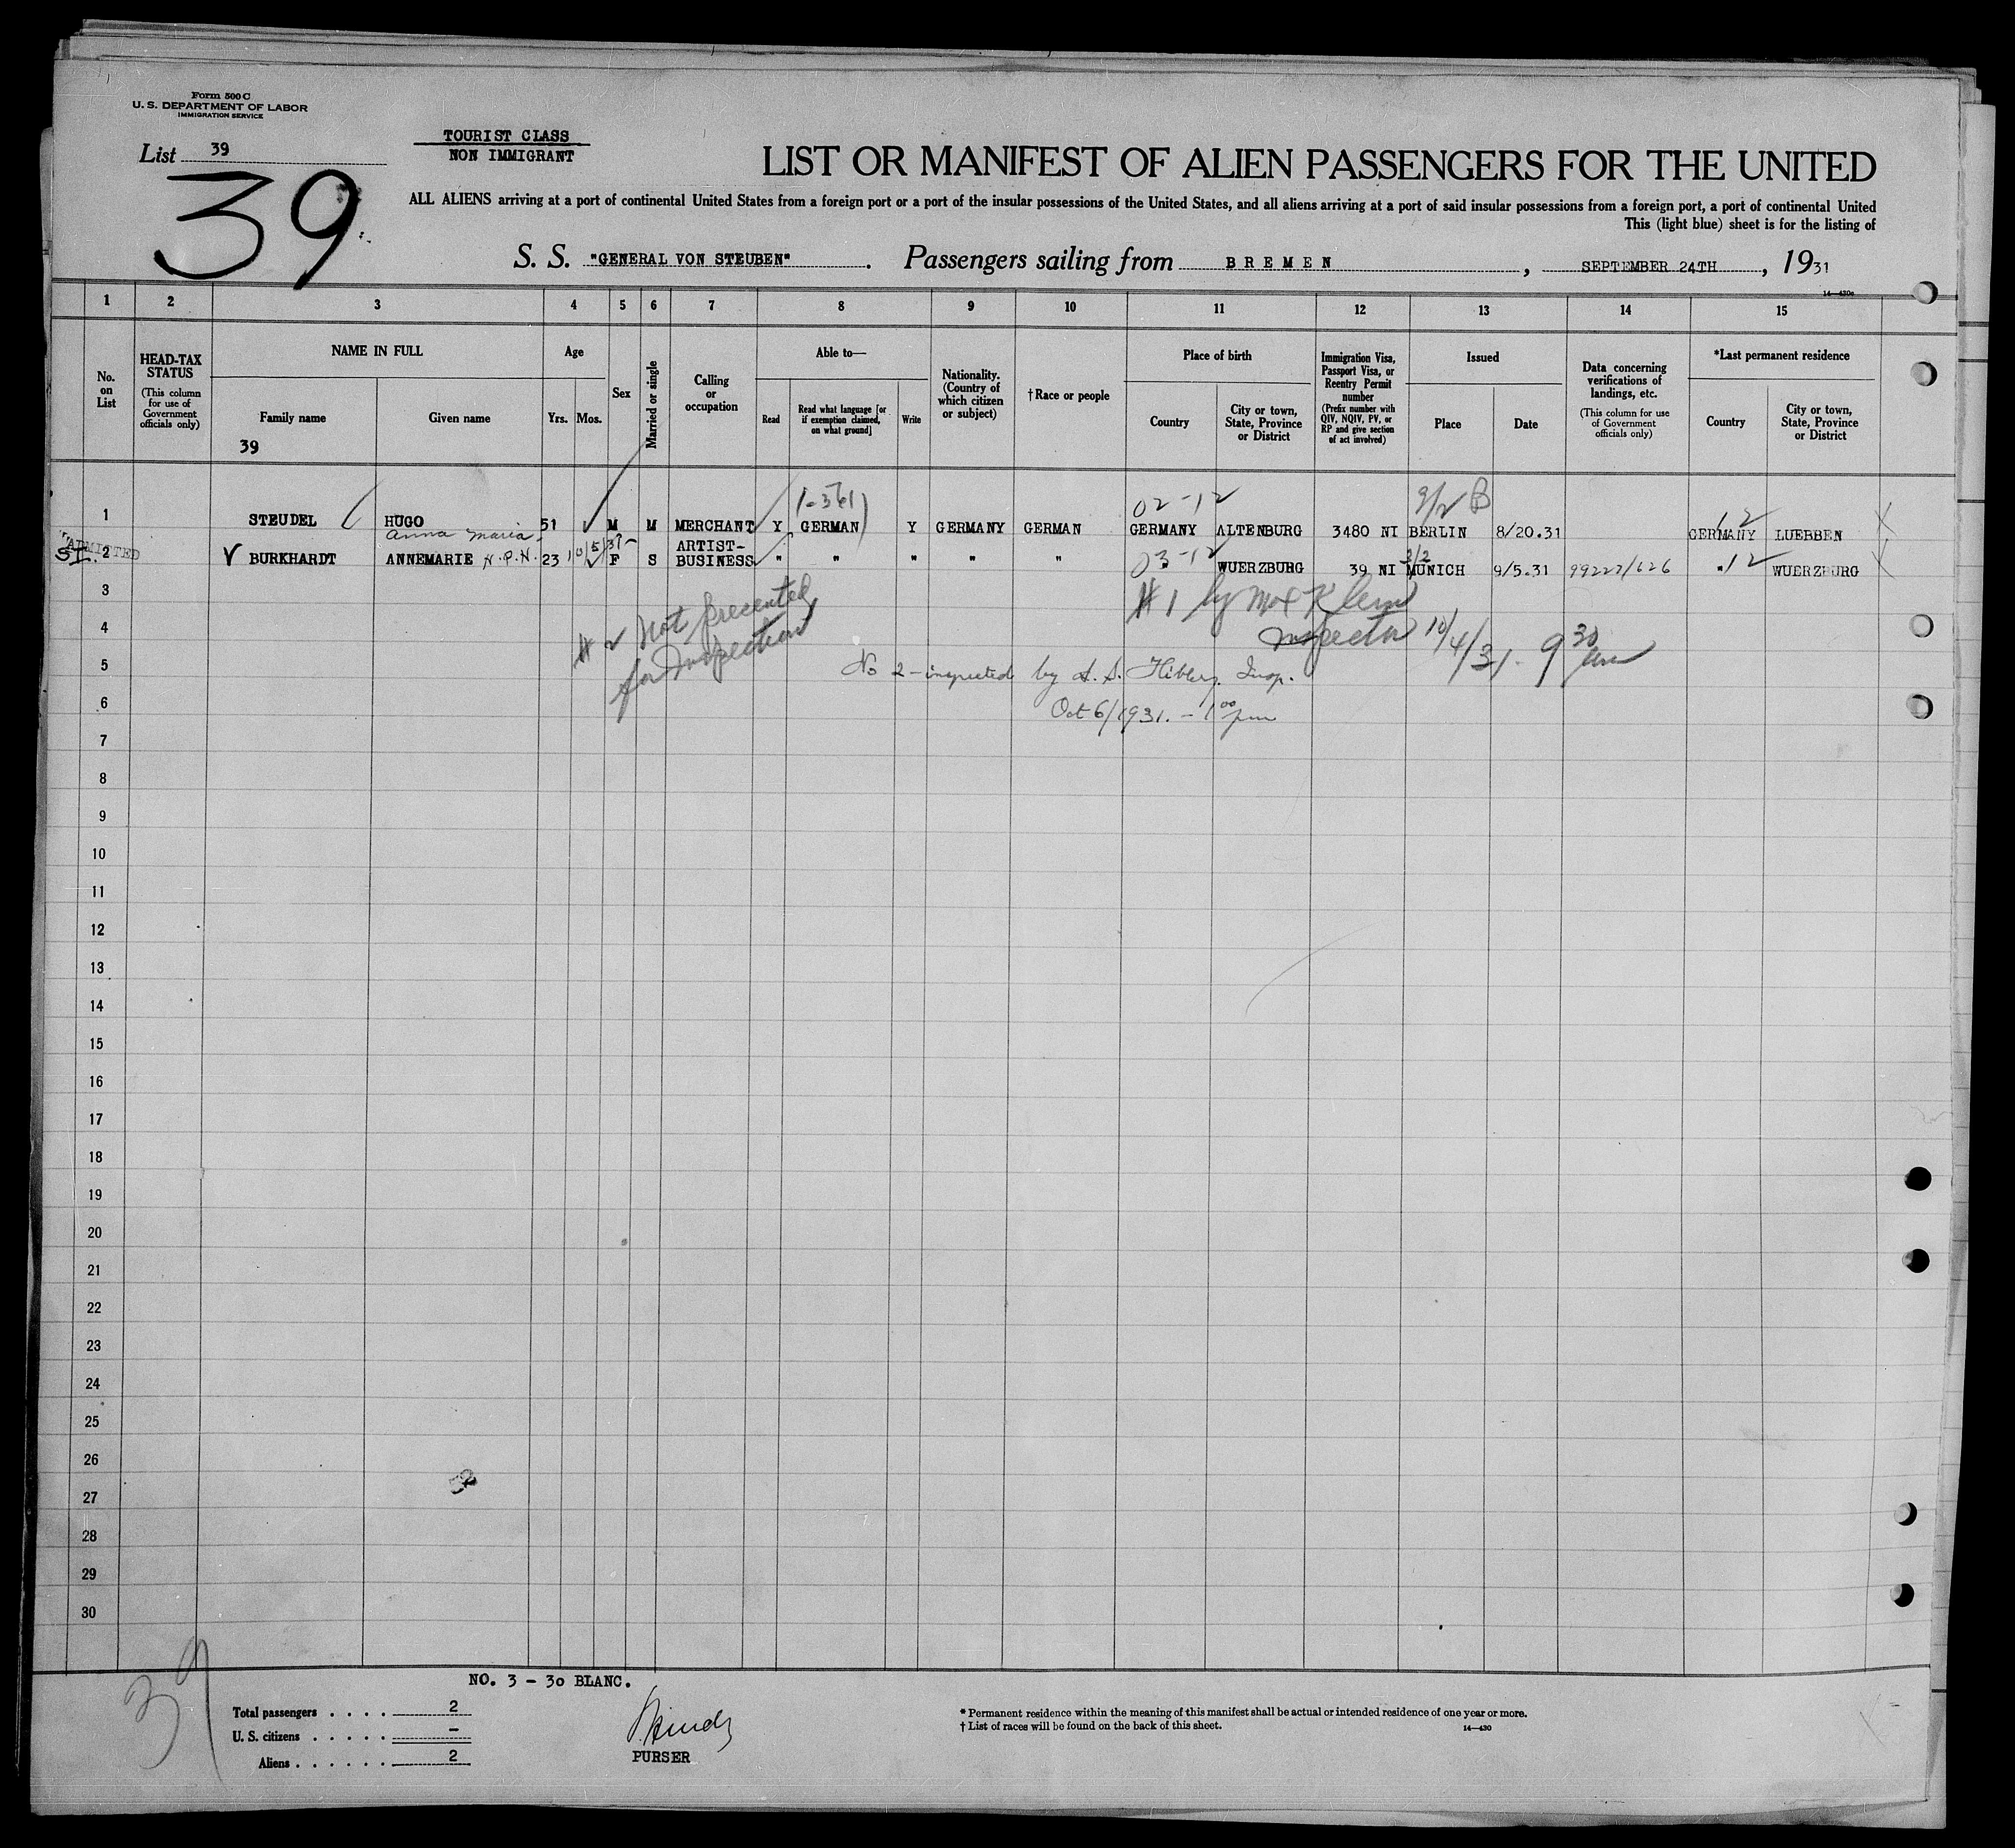 Form 500 C
U. S. DEPARTMENT OF LABOR
IMMIGRATION SERVICE
List 39
39
TOURIST CLASS
NON IMMIGRANT
LIST OR MANIFEST OF ALIEN PASSENGERS FOR THE UNITED
ALL ALIENS arriving at a port of continental United States from a foreign port or a port of the insular possessions of the United States, and all aliens arriving at a port of said insular possessions from a foreign port, a port of continental United
This (light blue) sheet is for the listing of
S. S. "GENERAL VON STEUBEN". Passengers sailing from BREMEN, SEPTEMBER 24TH, 1931
14—430a
1 2 3 4 5 6 7 8 9 10 11 12 13 14 15
No. on List
HEAD-TAX STATUS
(This column for use of Government officials only)
NAME IN FULL
Family name
39
Given name
Age
Yrs. Mos.
Sex
Married or single
Calling or occupation
Able to—
Read
Read what language [or if exemption claimed, on what ground]
Write
Nationality. (Country of which citizen or subject)
†Race or people
Place of birth
Country
City or town, State, Province or District
Immigration Visa, Passport Visa, or Reentry Permit number
(Prefix number with QIV, NQIV, PV, or RP and give section of act involved)
Issued
Place
Date
Data concerning verifications of landings, etc.
(This column for use of Government officials only)
*Last permanent residence
Country
City or town, State, Province or District
02-12
1 STEUDEL HUGO 51 M M MERCHANT Y GERMAN Y GERMANY GERMAN GERMANY ALTENBURG 3480 NI BERLIN 8/20.31 GERMANY 12 LUEBBEN
Anna Maria
ADMITTED
SI. 2 BURKHARDT ANNEMARIE H.P.N. 23 10/5/31 F S ARTIST-BUSINESS " " " " " 03-12 " WUERZBURG 39 NI 3/2 MUNICH 9/5.31 99227/626 " 12 WUERZBURG
# 2 Not presented
for Inspection
# 1 by Max Klein
Inspector 10/4/31. 9 30 am
No 2-inspected by Insp.
Oct 6/1931. - 1 00 pm
3
4
5
6
7
8
9
10
11
12
13
14
15
16
17
18
19
20
21
22
23
24
25
26
27
28
29
30
39
NO. 3 - 30 BLANC.
Total passengers . . . . 2
U. S. citizens . . . . . –
Aliens . . . . . . 2
PURSER
* Permanent residence within the meaning of this manifest shall be actual or intended residence of one year or more.
† List of races will be found on the back of this sheet.
14—430